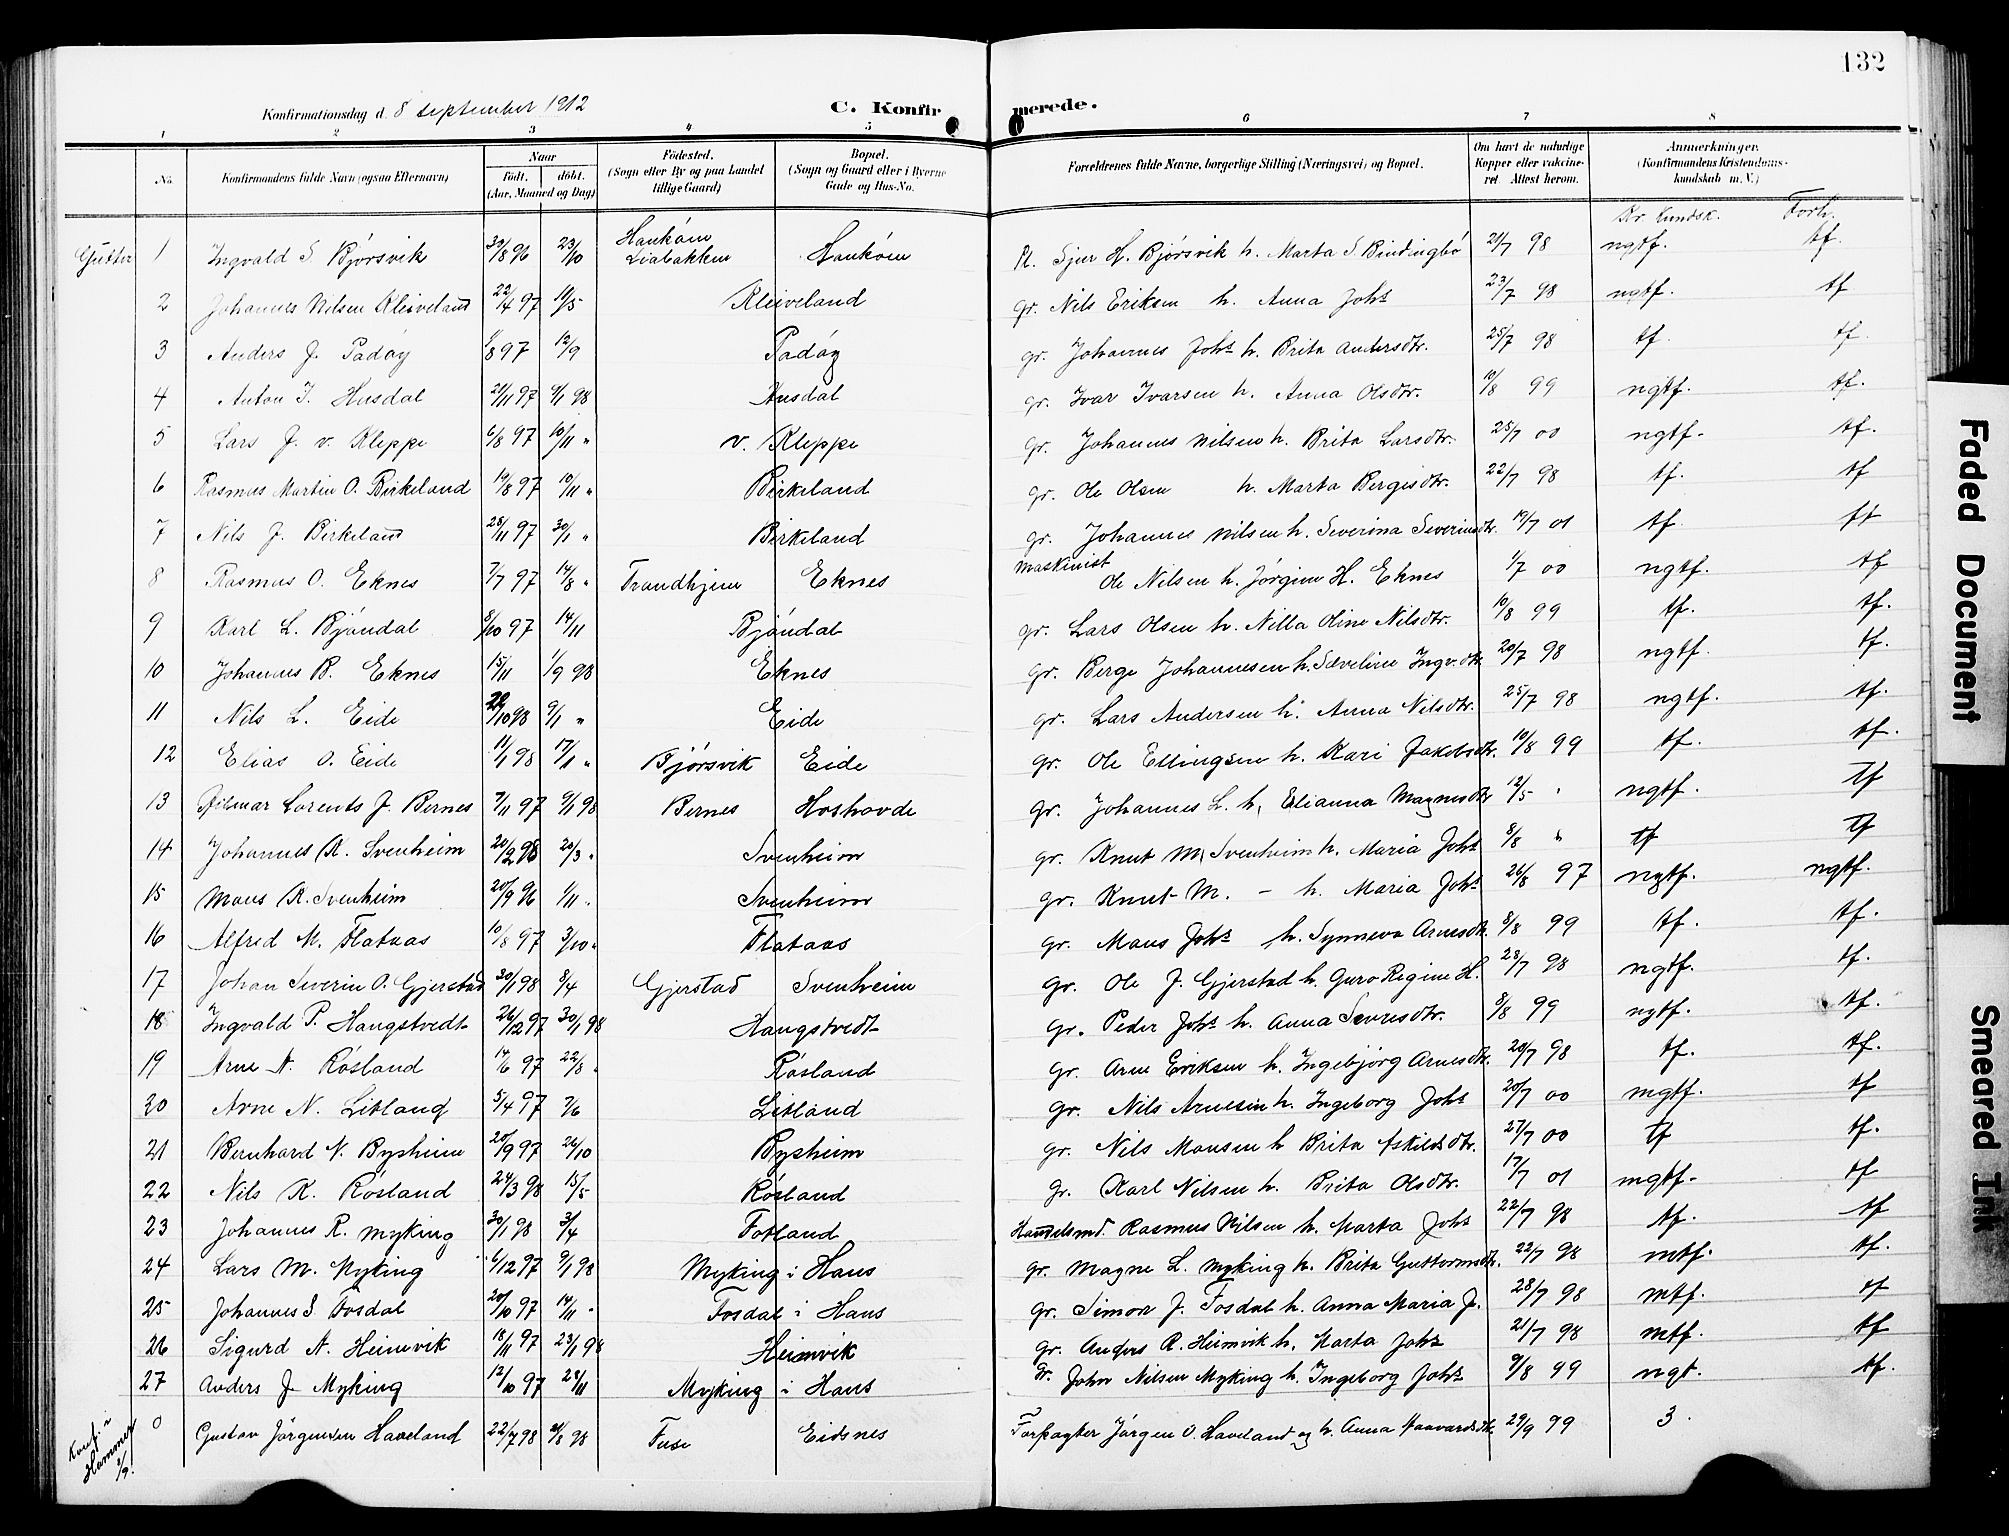 132
Konfirmationsdag d. 8 september 1912 C. Konfirmerede.
1 2 3 4 5 6 7 8
No. Konfirmandens fulde Navn (ogsaa Efternavn) Naar født. døbt. (Aar, Maaned og Dag) Fødested. (Sogn eller By og paa Landet tillige Gaard) Bopæl. (Sogn og Gaard eller i Byerne Gade og Hus-No. Forældrenes fulde Navne, borgerlige Stilling (Næringsvei) og Bopæl. Om havt de naturlige Kopper eller vaccineret. Attest herom. Anmerkninger. (Konfirmandens Kristendomskundskab m. V.)
Kr. Kundsk. Forh.
Gutter 1 Ingvald S. Bjørsvik 30/8 96 23/10 Haukåm Liabakken Haukåm Sjur H. Bjørsvik h. Marta S. Bindingbø 21/7 98 ngtf. tf.
2 Johannes Nilsen Kleiveland 22/4 97 11/5 Kleiveland gr. Nils Eriksen h. Anna Johs 23/7 98 ngtf. tf
3 Anders J. Padøy 1/8 97 12/9 Padøy gr. Johannes Johs h. Brita Andersdtr. 25/7 98 tf. tf.
4 Anton I. Husdal 21/11 97 9/1 98 Husdal gr. Ivar Ivarsen h. Anna Olsdtr. 10/8 99 ngtf. tf.
5 Lars J. v. Kleppe 6/8 97 10/11 " v. Kleppe gr. Johannes Nilsen h. Brita Larsdtr. 25/7 00 ngtf. tf.
6 Rasmus Martin O. Birkeland 19/8 97 10/11 " Birkeland gr. Ole Olsen h. Marta Bergesdtr. 22/7 98 tf. tf
7 Nils J. Birkeland 28/11 97 30/1 " Birkeland gr. Johannes Nilsen h. Severina Severinsdtr. 19/7 01 tf. tf
8 Rasmus O. Eknes 7/7 97 14/8 " Trondhjem Eknes Maskinist Ole Nilsen h. Jørgine H. Eknes 1/7 00 ngtf. tf
9 Karl L. Bjøndal 8/10 97 14/11 Bjøndal gr. Lars Olsen h. Nilla Oline Nilsdtr. 10/8 99 tf. tf.
10 Johannes B. Eknes 15/11 1/9 98 Eknes gr. Berge Johannesen h. Seveline Ingv.dtr. 20/7 98 ngtf. tf.
11 Nils L. Eide 22/10 98 9/1 " Eide gr. Lars Andersen h. Anna Nilsdtr. 25/7 98 ngtf. tf.
12 Elias O. Eide 11/1 98 17/1 " Bjørsvik Eide gr. Ole Ellingsen h. Kari Jakobsdtr. 10/8 99 tf. tf.
13 Hilmar Lorents J. Bernes 7/11 97 9/1 98 Bernes Hoshovde gr. Johannes L. h. Elianna Magnesdtr 12/5 " ngtf. tf
14 Johannes K. Svenheim 20/2 98 20/3 " Svenheim gr. Knut M. Svenheim h. Maria Johs 8/8 " tf tf
15 Mons K. Svenheim 20/9 96 1/11 " Svenheim gr. Knut M. - h. Maria Johs 26/8 97 ngtf. ngtf.
16 Alfred M. Flataas 10/8 97 3/10 " Flataas gr. Mons Johs h. Synneva Arnesdtr. 8/8 99 tf. tf.
17 Johan Severin O. Gjerstad 20/1 98 8/4 Gjerstad Svenheim gr. Ole J. Gjerstad h. Guro Regine H. 28/7 98 ngtf. tf.
18 Ingvald P. Haugstvedt 26/12 97 30/1 98 Haugstvedt gr. Peder Johs h. Anna Sevresdtr. 8/8 99 ngtf. tf.
19 Arne A. Røsland 17/6 97 22/8 " Røsland gr. Arne Eriksen h. Ingebjørg Arnesdtr. 20/7 98 tf. tf.
20 Arne N. Litland 5/4 97 7/6 Litland gr. Nils Arnesen h. Ingeborg Johs 20/7 00 mgtf. tf
21 Bernhard N. Bysheim 20/9 97 26/10 Bysheim gr. Nils Monsen h Brita Askildsdtr. 27/7 00 tf tf.
22 Nils K. Røsland 24/3 98 15/5 Røsland gr. Karl Nilsen h. Brita Olsdtr. 17/7 01 mgtf. tf
23 Johannes R. Myking 30/1 98 3/4 Fotland Handelsmd. Rasmus Nilsen h. Marta Johs 22/7 98 tf. tf
24 Lars M. Myking 6/12 97 9/1 98 Myking i Haus gr. Magne L. Myking h. Brita Guttormsdtr. 22/7 98 mtf. tf.
25 Johannes S. Fosdal 20/10 97 14/11 " Fosdal i Haus gr. Simon J. Fosdal h. Anna Maria J. 28/7 98 mtf. tf
26 Sigurd A. Heimvik 18/11 97 23/1 98 Heimvik gr. Anders R. Heimvik h. Marta Johs 21/7 98 mtf. tf
27 Anders J Myking 12/10 97 28/11 Myking i Haus gr. John Nilsen Myking h. Ingeborg Johs 9/8 99 ngt. tf.
Konf. i Hammer 2/9! 0 Gustav Jørgensen Haaeland 22/7 98 21/8 98 Fuse Eidsnes Forpagter Jørgen O. Haveland og h. Anna Haavardsdtr. 29/9 99 3.
Faded Document
Smeared Ink